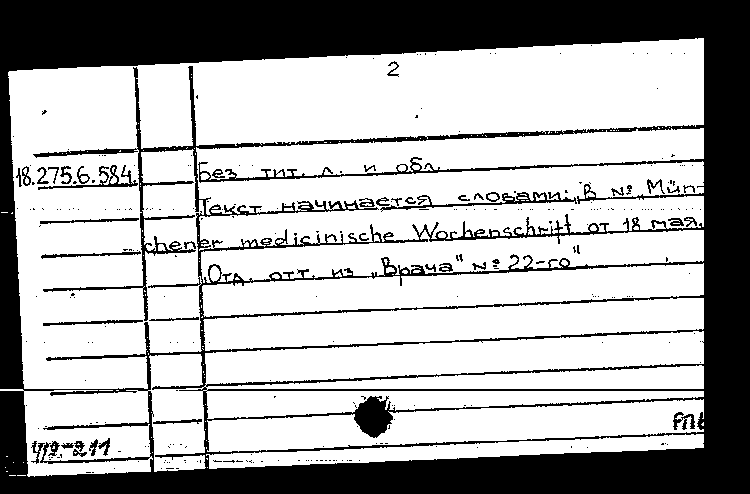 2
18.275.6.584. Без тит. л. и обл.
Текст начинается словами: „В № „Mün-
chener medicinische Wochenschrift от 18 мая.
„Отд. отт. из „Врача" № 22-го"